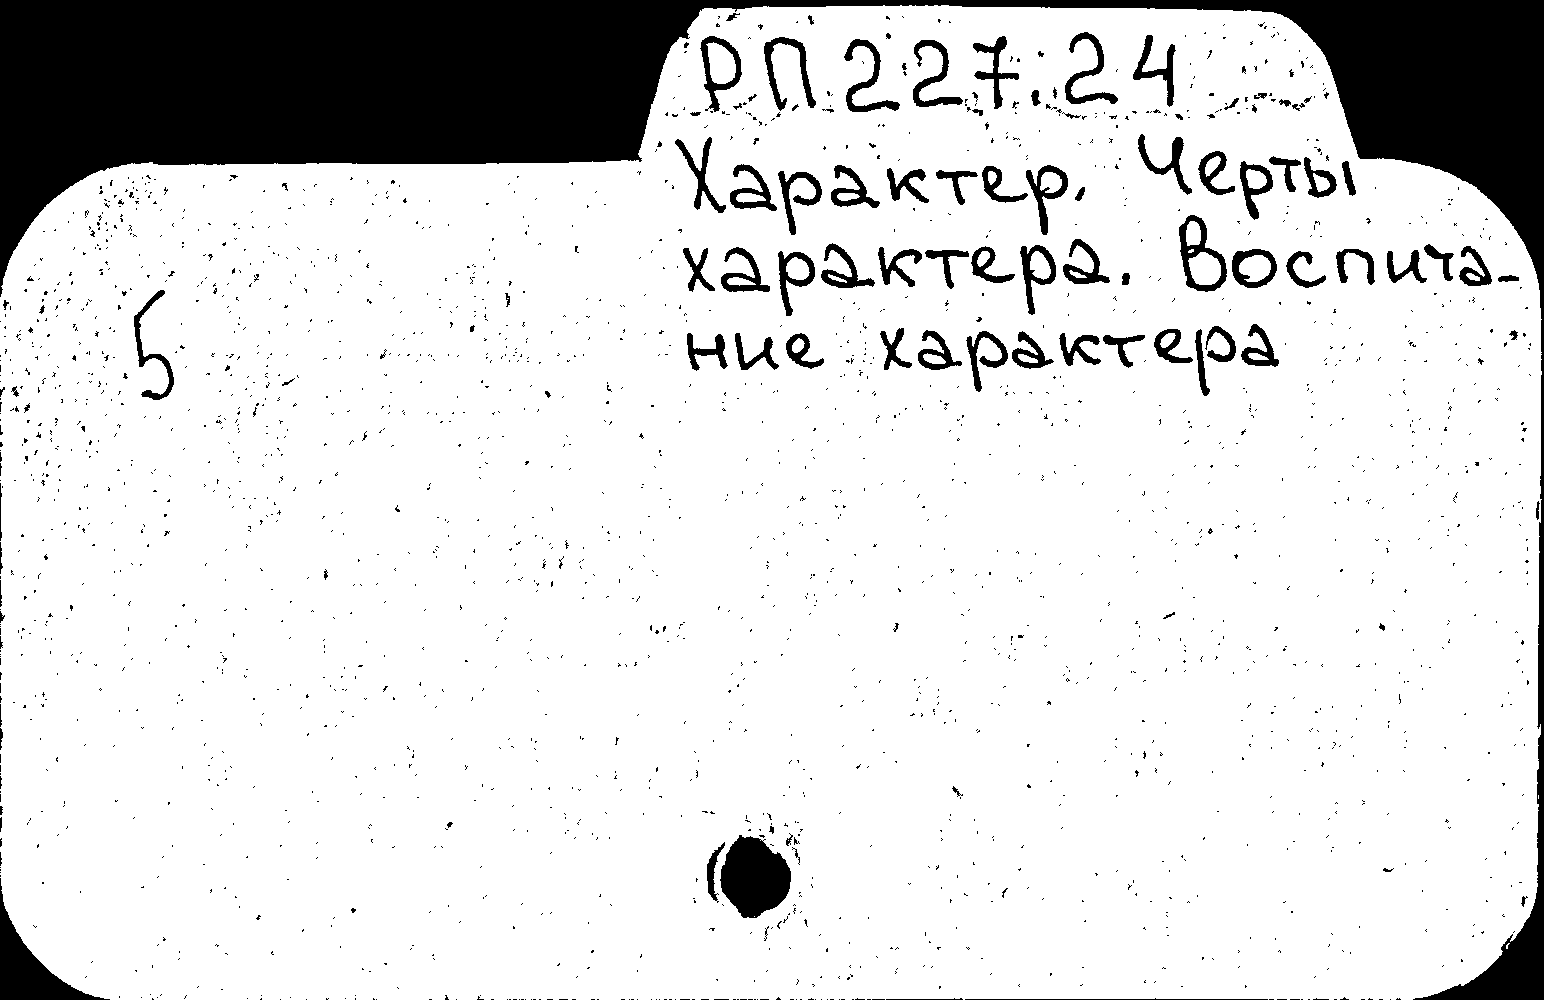 РП227.24
Характер. Черты
характера. Воспита-
ние характера
5